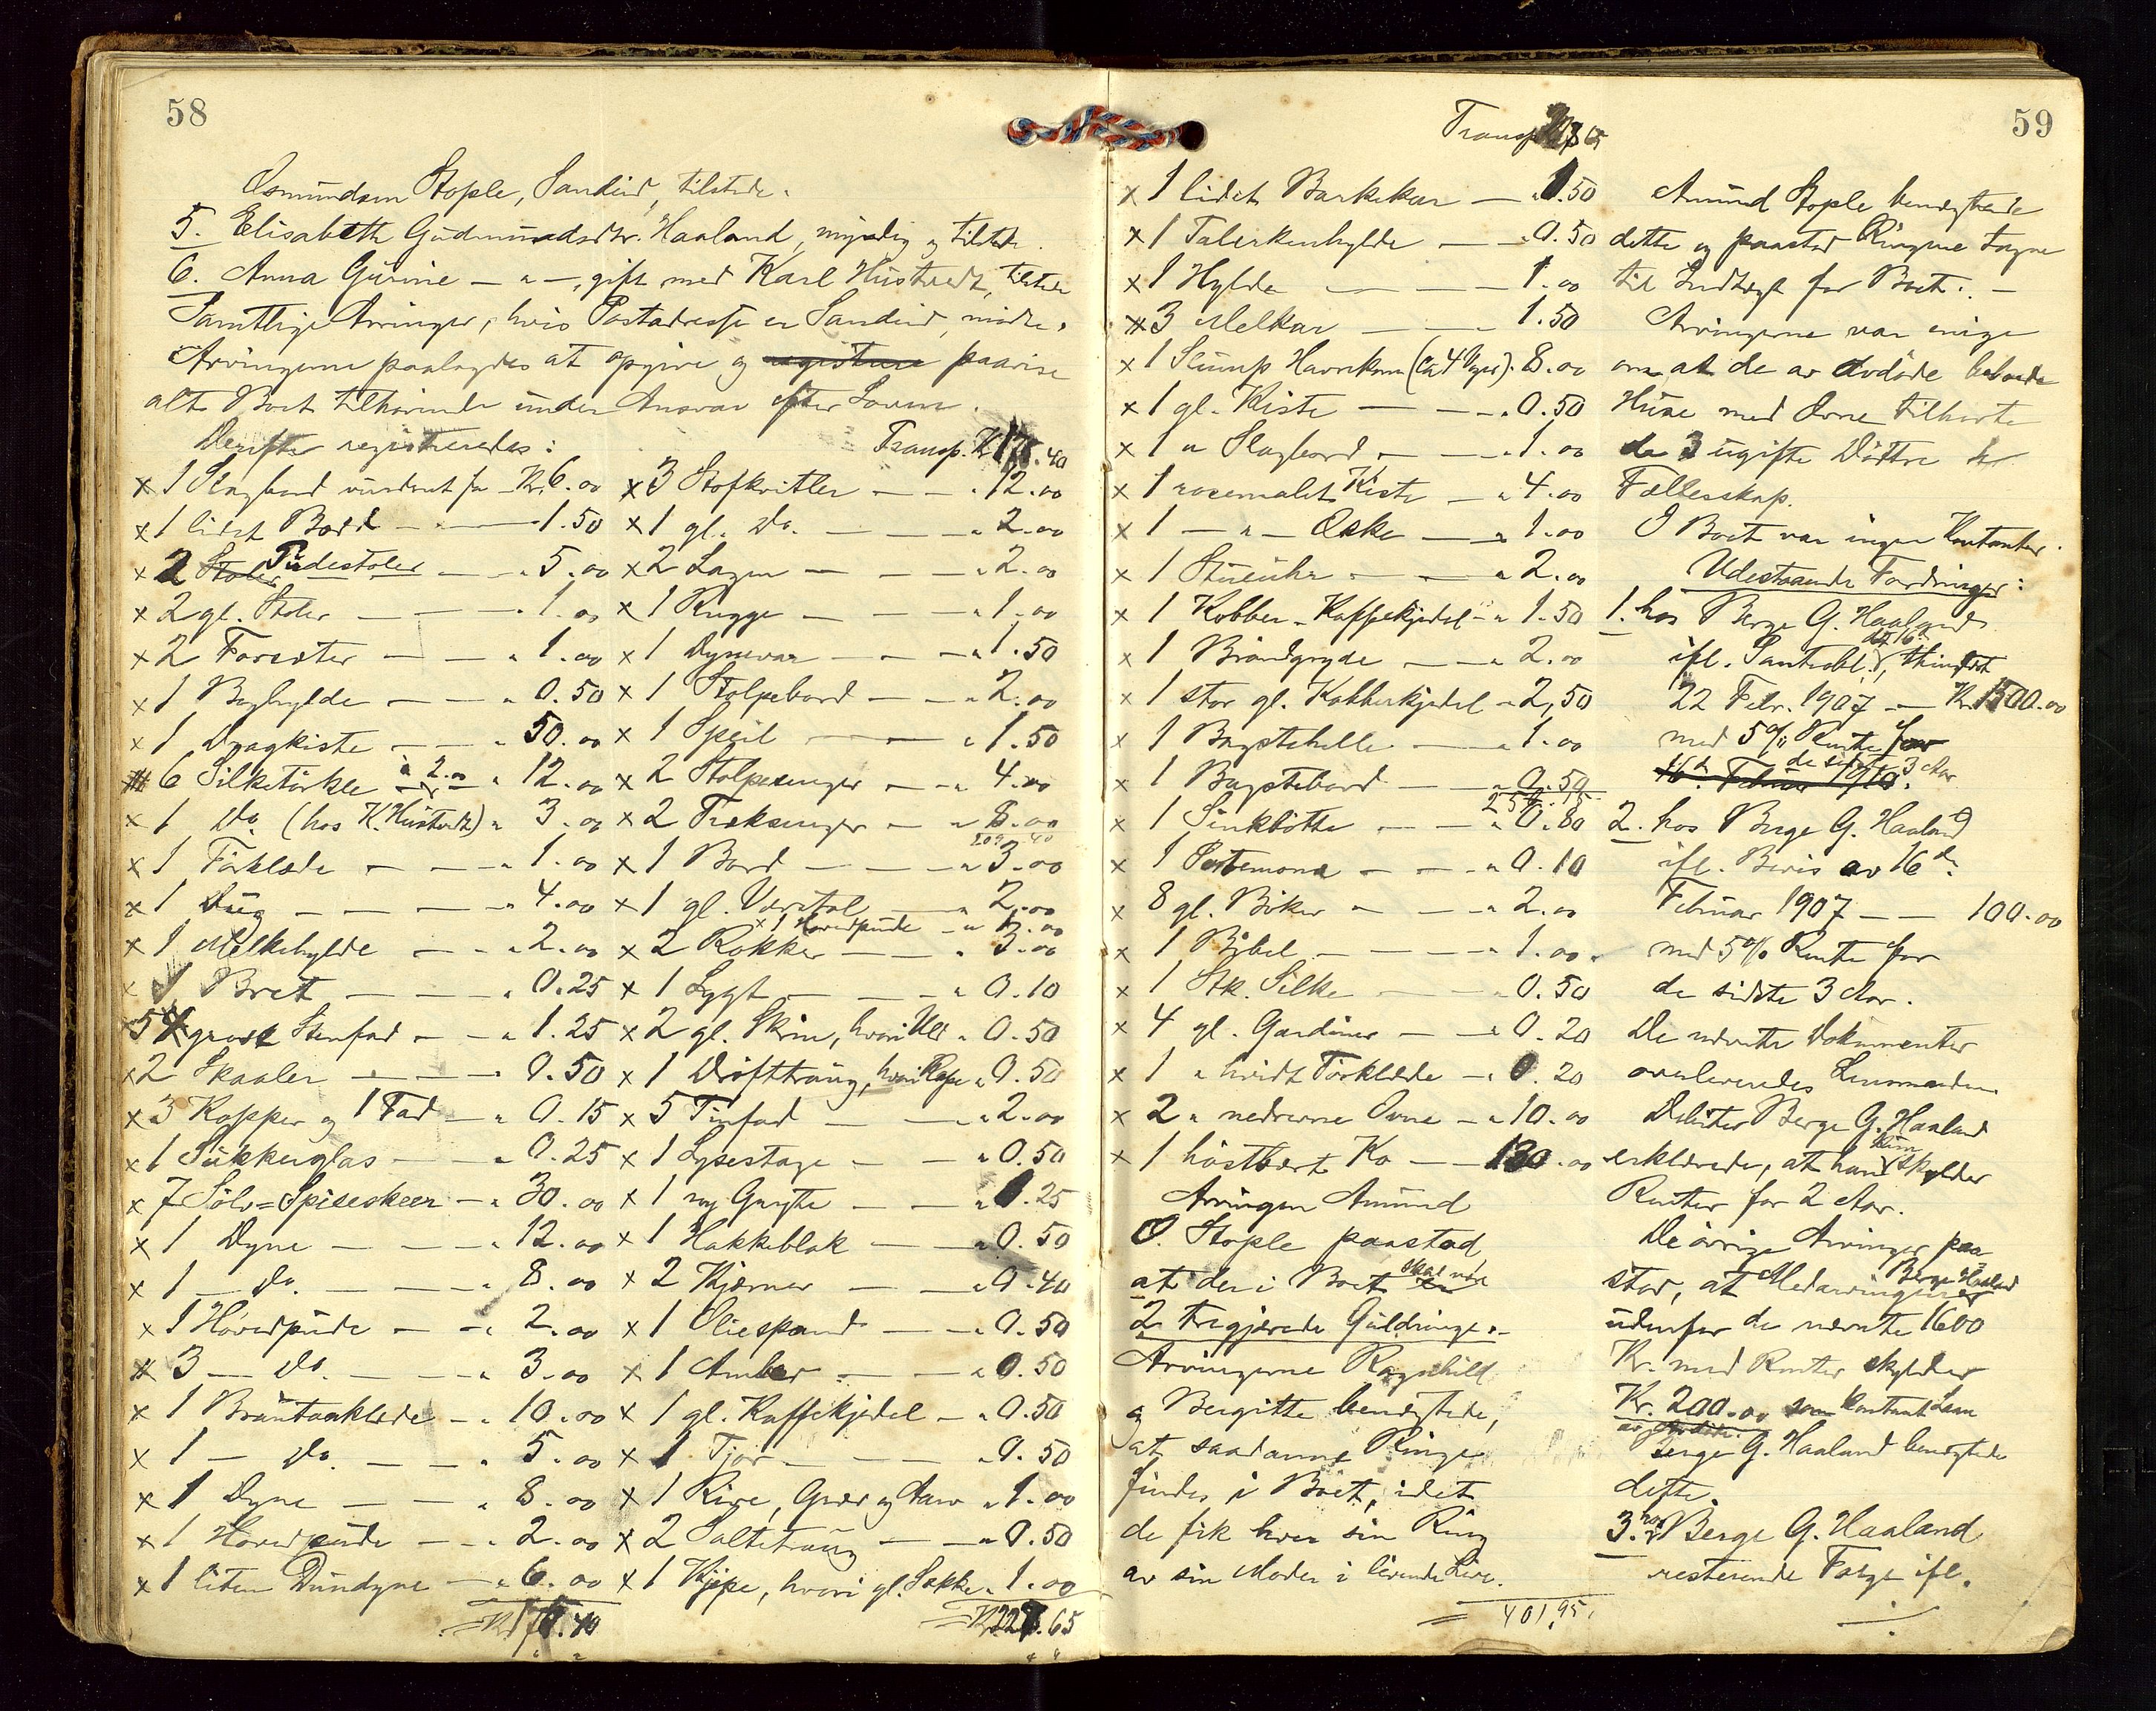 58
Osmundsen Stople, Sandeid, tilstede.
5. Elisabeth Gudmundsdtr. Haaland, myndig og tilstede.
6. Anna Gurine — " —, gift med Karl Hustvedt, tilstede
Samtlige Arvinger, hvis Postadresse er Sandeid, mødte.
Arvingerne paalagdes at opgive og registrere paavise
alt Boet tilhørende under Ansvar efter Loven.
Derefter registreredes:
x 1 Slagbord vurderet for Kr. 6.00
x 1 lidet Bord — 1.50
x 2 Stoler Pudestoler — " 5.00
x 2 gl. Stoler — " 1.00
x 2 Forsæter — " 1.00
x 1 Boghylde — " 0.50
x 1 Dragkiste — " 50.00
x 6 Silketørkle à 2.00 " 12.00
x 1 Do. (hos K. Hustvedt) " 3.00
x 1 Forklæde — " 1.00
x 1 Dug — " 4.00
x 1 Melkehylde — " 2.00
x 1 Bret — " 0.25
x 5 grust Stenfad — " 1.25
x 2 Skaaler — 0.50
x 3 Kopper og 1 Fad — " 0.15
x 1 Sukkerglas — " 0.25
x 7 Sølv=Spiseskeer — " 30.00
x 1 Dyne — " 12.00
x 1 — Do. — " 8.00
x 1 Hovedpude — " 2.00
x 3 — Do. — " 3.00
x 1 Brüntaaklæde — " 10.00
x 1 — Do. — " 5.00
x 1 Dyne — " 8.00
x 1 Hovedpude — " 2.00
x 1 liten Dundyne — " 6.00
Transp. Kr.
x 3 Stofkvitler — " 12.00
x 1 gl. Do. — " 2.00
x 2 Lagen — " 2.00
x 1 Rugge — " 1.00
x 1 Dynevar — " 1.50
x 1 Stolpebord — " 2.00
x 1 Speil — " 1.50
x 2 Stolpesenger — " 4.00
x 2 Træksenger — " 8.00
x 1 Bord — " 3.00
x 1 gl. Vævstol — " 2.00
x 1 Hovedpude — "
x 2 Rokker — " 3.00
x 1 Lygt — " 0.10
x 2 gl. Skrin, hvori Uld " 0.50
x 1 Drøfttraug, hvori " 0.50
x 5 Tinfad — " 2.00
x 1 Lysestage — " 0.50
x 1 ny Gryte — " 1.25
x 1 Hakkeblok — " 0.50
x 2 Kjerner — " 0.40
x 1 Oliespand — " 0.50
x 1 Amber — " 0.50
x 1 gl. Kaffekjedel — " 0.50
x 1 Tjor — " 0.50
x 1 Rive, Grev og " 1.00
x 2 Saltetraug — " 0.50
x 1 Kjipe, hvori gl. Sække " 1.00
59
Transp.
x 1 lidet Barkekar — " 1.50
x 1 Talerkenhylde — " 0.50
x 1 Hylde — 1.00
x 3 Melkar — 1.50
x 1 Slump Havrekorn (ca 4 Voger) " 8.00
x 1 gl. Kiste — " 0.50
x 1 " Slagbord — " 1.00
x 1 rosemalet Kiste — " 4.00
x 1 — " — Æske — " 1.00
x 1 Stueuhr — " 2.00
x 1 Kobber-Kaffekjedel — " 1.50
x 1 Brandgryde — " 2.00
x 1 stor gl. Kobberkjedel " 2,50
x 1 Bagstehelle — " 1.00
x 1 Bagstebord — " 0.50
x 1 Sinkbøtte — " 0.80
x 1 Portemoné — " 0.10
x 8 gl. Bøker — " 2.00
x 1 Bibel — " 1.00
x 1 Stk. Silke — 0.50
x 4 gl. Gardiner — " 0.20
x 1 " hvidt Forklæde — " 0.20
x 2 " nedrevne Ovne — " 10.00
x 1 høstbært Ko — 130.00
Arvingen Amund
O. Stople paastod
at der i Boet er skal være
2 tregjærede Guldringe.
Arvingerne Ragnhild
og Bergitte benegtede,
at saadanne Ringe
findes i Boet, idet
de fik hver sin Ring
av sin Moder i levende Live.
= 401,95.
Amund Stople benegtede
dette og paastod Ringene tagne
til Indtægt for Boet. —
Arvingerne var enige
om at de av Avdøde beboede
Huse med Ovne tilhørte
de 3 ugifte Døttre i
Fællesskap.
I Boet var ingen Kontanter.
Udestaaende Fordringer:
1. hos Berge G. Haaland
ifl. Panteobl. thinglæst
22 Febr. 1907 — Kr. 1500.00
med 5 % Rente for
de sidste 3 Aar
16d. Februar 1910.
2. hos Berge G. Haaland
ifl. Bevis av 16d.
Februar 1907 — 100.00
med 5 % Rente for
de sidste 3 Aar.
De nævnte Dokumenter
overleveredes Lensmanden
Debitor Berge G. Haaland
erklærede, at han kun skylder
Renter for 2 Aar.
De øvrige Arvinger paa-
stod, at Medarvingen Berge Haaland
udenfor de nævnte 1600
Kr. med Renter skylder
Kr. 200.00 som kontant Laan
av Avdøde.
Berge G. Haaland benegtede
dette.
3. hos Berge G. Haaland
resterende Folge ifl.